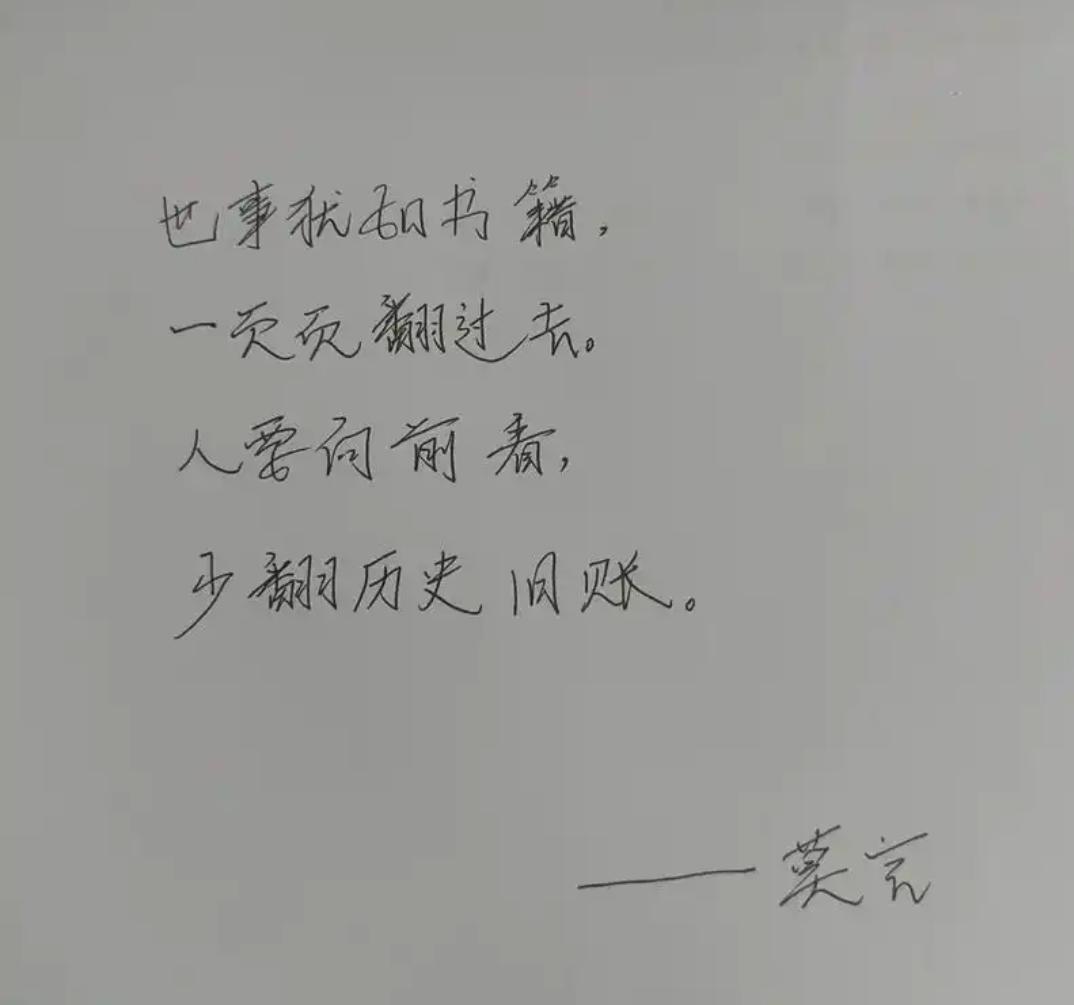 世事犹如书籍，
一页页翻过去。
人要向前看，
少翻历史旧账。
——莫言